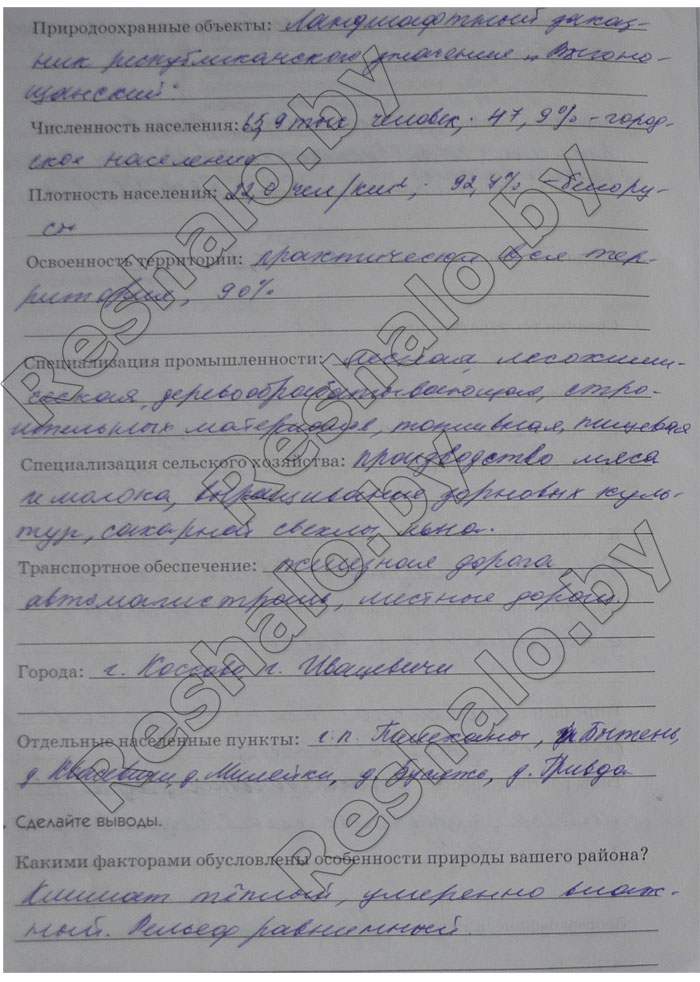 Природоохранные объекты: Ландшафтный заказ-
ник республиканского значения „Выгоно-
щанский"
Численность населения: 65,9 тыс человек; 47,9% - город-
ское население
Плотность населения: 22,0 чел/км²; 92,4% - белору-
сы
Освоенность территории: практически вся тер-
ритория, 90%
Специализация промышленности: лесная, лесохими-
ческая, деревообрабатывающая, стро-
ительных материалов, топливная, пищевая
Специализация сельского хозяйства: производство мяса
и молока, выращивание зерновых куль-
тур, сахарной свеклы льна.
Транспортное обеспечение: железная дорога
автомагистраль, местные дороги.
Города: г. Коссово г. Ивацевичи
Отдельные населенные пункты: г.п. Телеханы, Бытень,
д. Квасевичи, д. Милейки, д. д. Гривда
Сделайте выводы.
Какими факторами обусловлены особенности природы вашего района?
Климат тёплый, умеренно влаж-
ный. Рельеф равнинный
Reshalo.by
Reshalo.by
Reshalo.by
Reshalo.by